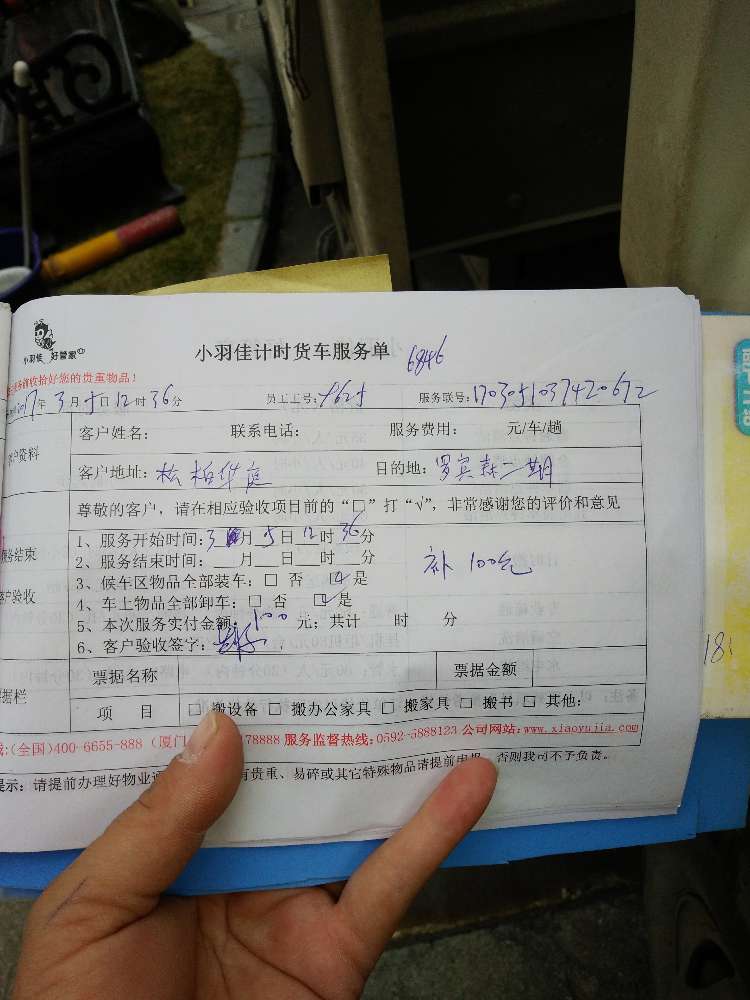 小羽佳 好管家
小羽佳计时货车服务单 6846
收拾好您的贵重物品！
17年 3月5日12时36分 员工工号: 服务联号:1703051037420672
客户资料 客户姓名： 联系电话： 服务费用： 元/车/趟
客户地址：松柏华庭 目的地：罗宾森二期
尊敬的客户，请在相应验收项目前的“□”打“√”，非常感谢您的评价和意见
1、服务开始时间：3月5日12时36分
服务结束 2、服务结束时间：___月___日___时___分
3、候车区物品全部装车：□ 否 ☑是
补 100元
客户验收 4、车上物品全部卸车：□ 否 ☑是
5、本次服务实付金额：100元；共计 时 分
6、客户验收签字：
票据栏 票据名称 票据金额
项 目 □搬设备 □ 搬办公家具 □ 搬家具 □ 搬书 □ 其他：
(全国)400-6655-888（厦门 78888 服务监督热线:0592-5888123 公司网站:www.xiaoyujia.com
提示：请提前办理好物业 有贵重、易碎或其它特殊物品请提前申报，否则我司不予负责。
181